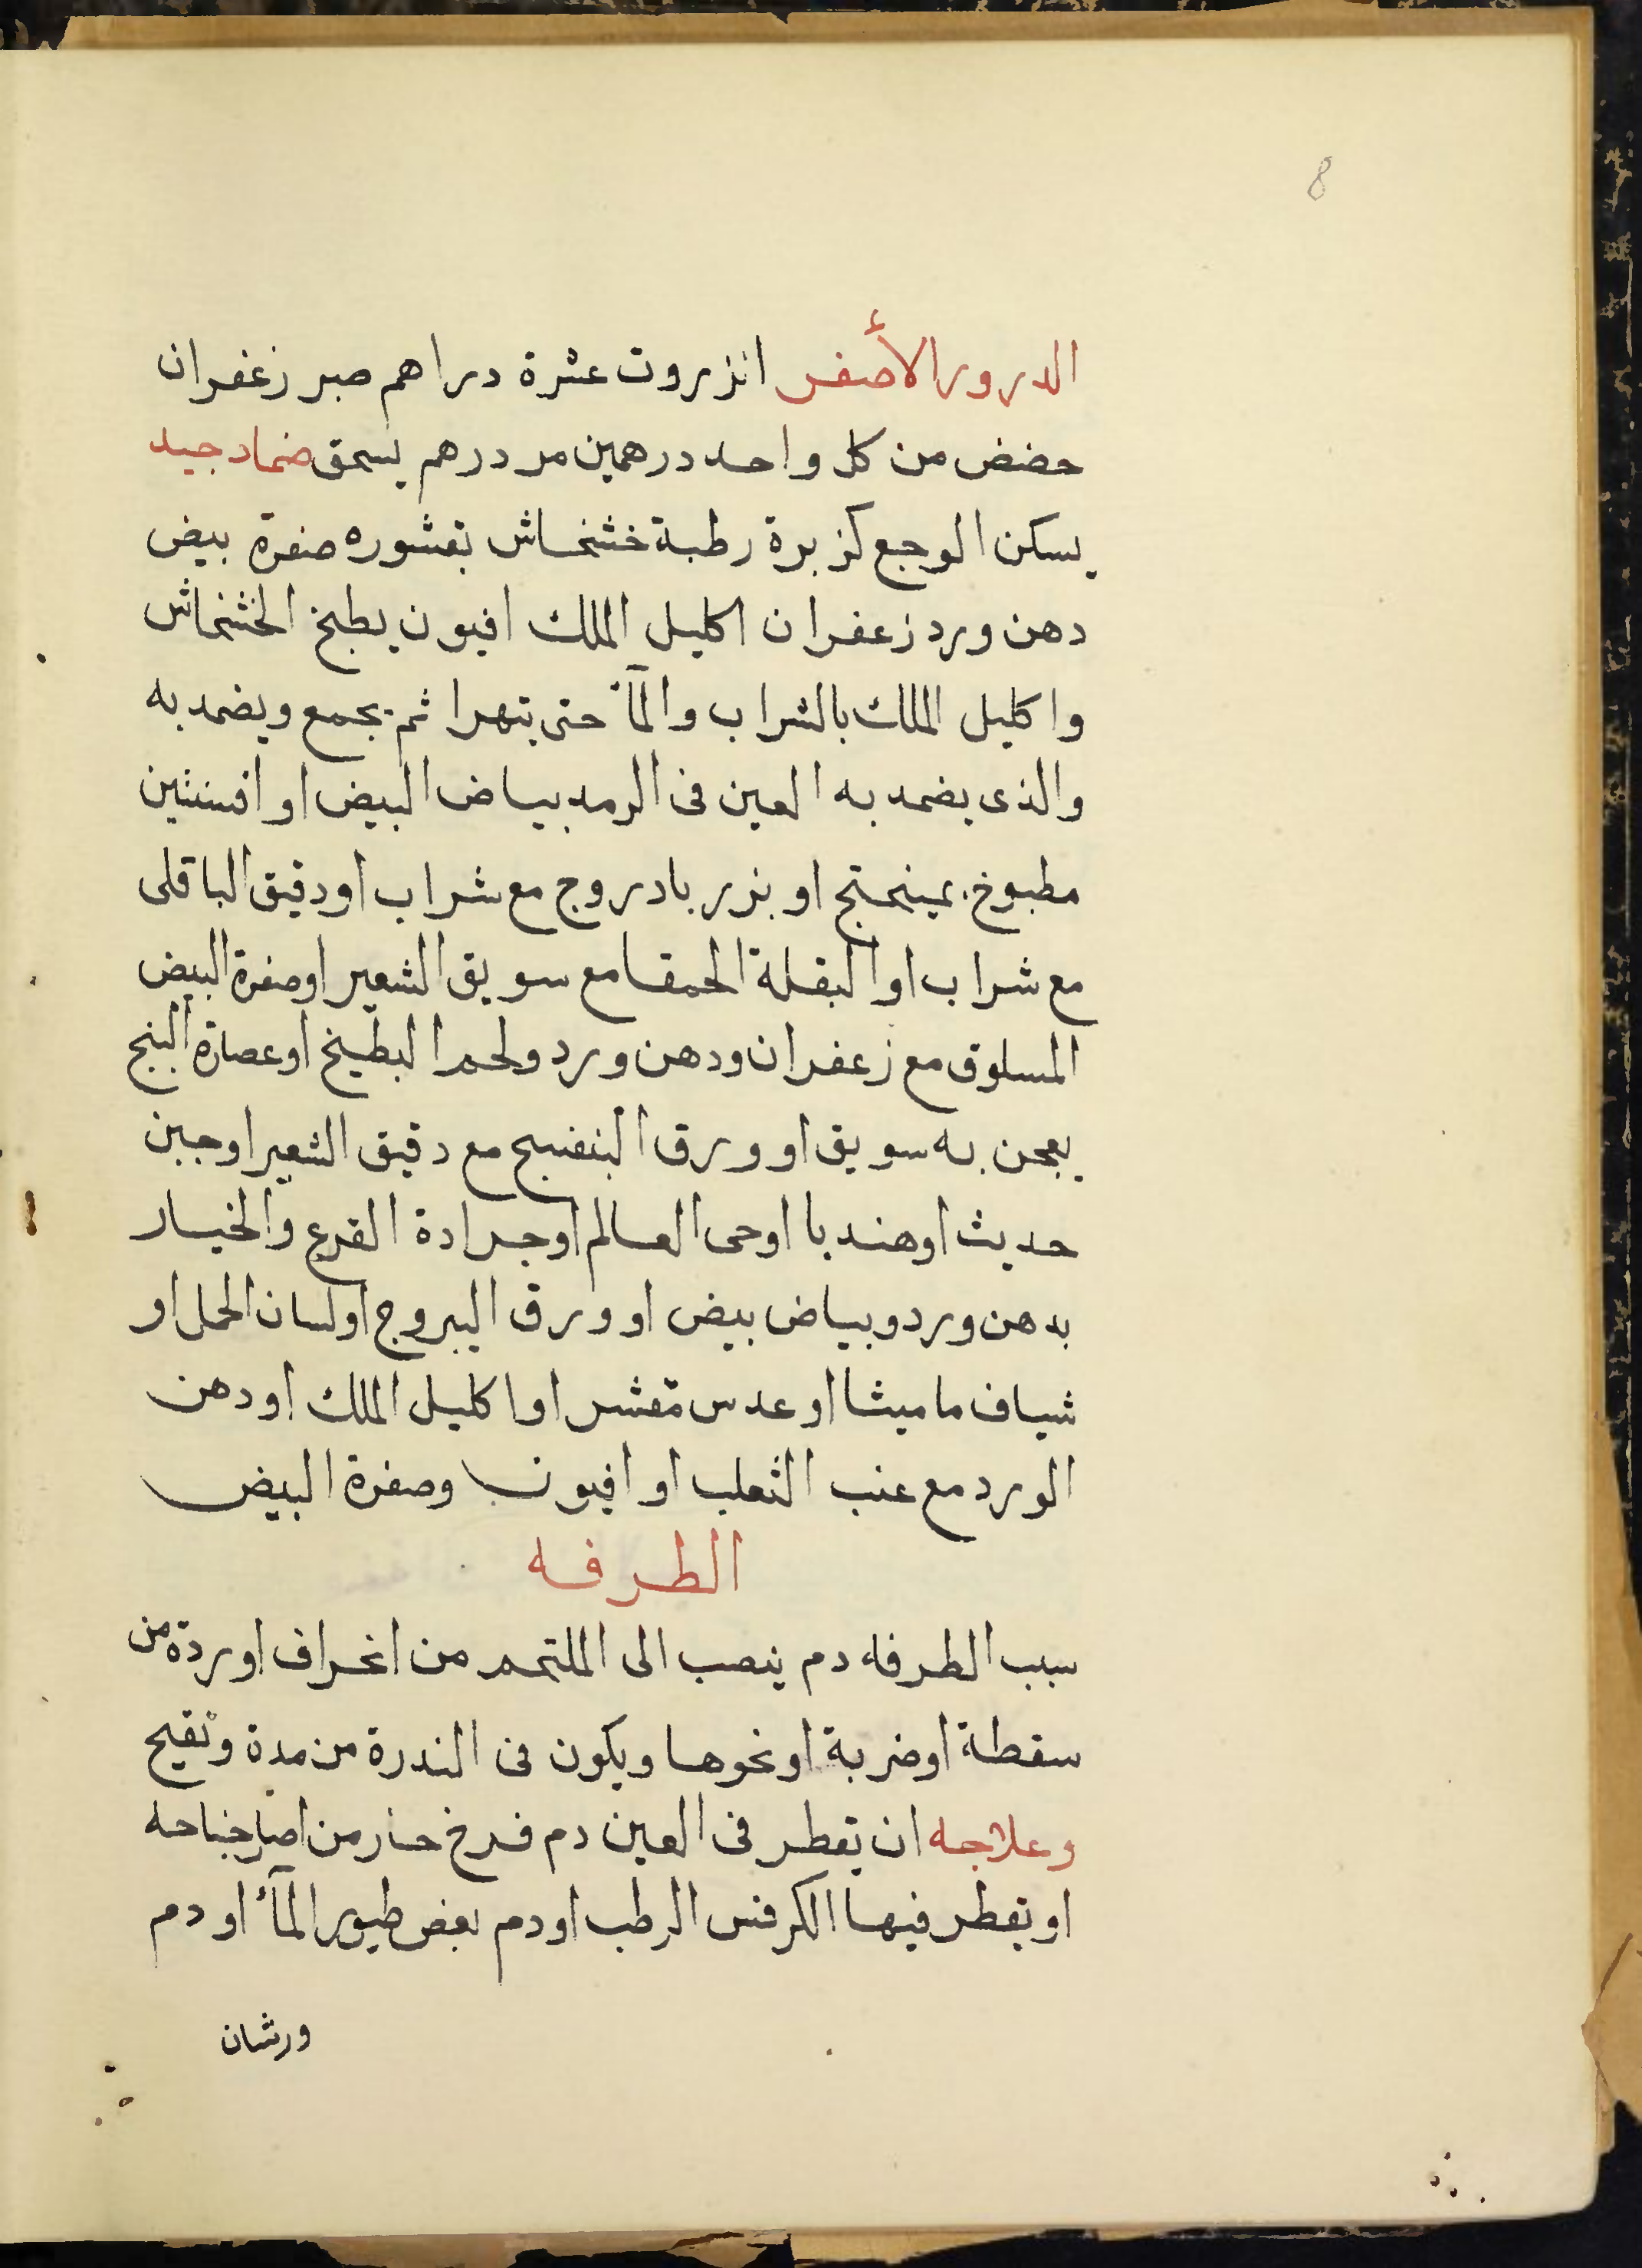 8
الدرور الأصفر انزروت عشرة دراهم صبر زغفران
حضض من كل واحد درهمين مر درهم يسحق ضماد جيد
يسكن الوجع كزبرة رطبة خشخاش بقشوره صفرة بيض
دهن ورد زعفران اكليل الملك افيون يطبخ الخشخاش
واكليل الملك بالشراب والمآء حتى يتهرا ثم يجمع ويضمد به
والذى يضمد به العين فى الرمد بياض البيض او افسنتين
مطبوخ بميبختج او بزر بادروج مع شراب او دقيق الباقلى
مع شراب او البقلة الحمقا مع سويق الشعير او صفرة البيض
المسلوق مع زعفران ودهن ورد ولحم البطيخ او عصارة البنج
يعجن به سويق او ورق البنفسج مع دقيق الشعير او جبن
حديث او هندبا او حى العالم او جرادة القرع والخيار
بدهن ورد وبياض بيض او ورق اليبروج او لسان الحمل او
شياف ماميثا او عدس مقشر او اكليل الملك او دهن
الورد مع عنب الثعلب او افيون وصفرة البيض
الطرفه
سبب الطرفه دم ينصب الى الملتحم من انخراف اوردة من
سقطة او ضربة او نحوها ويكون فى الندرة من مدة وتقيح
وعلاجه ان يقطر فى العين دم فرخ حار من اصل جناحه
او يقطر فيها الكرفس الرطب او دم بعض طيور المآء او دم
ورشان